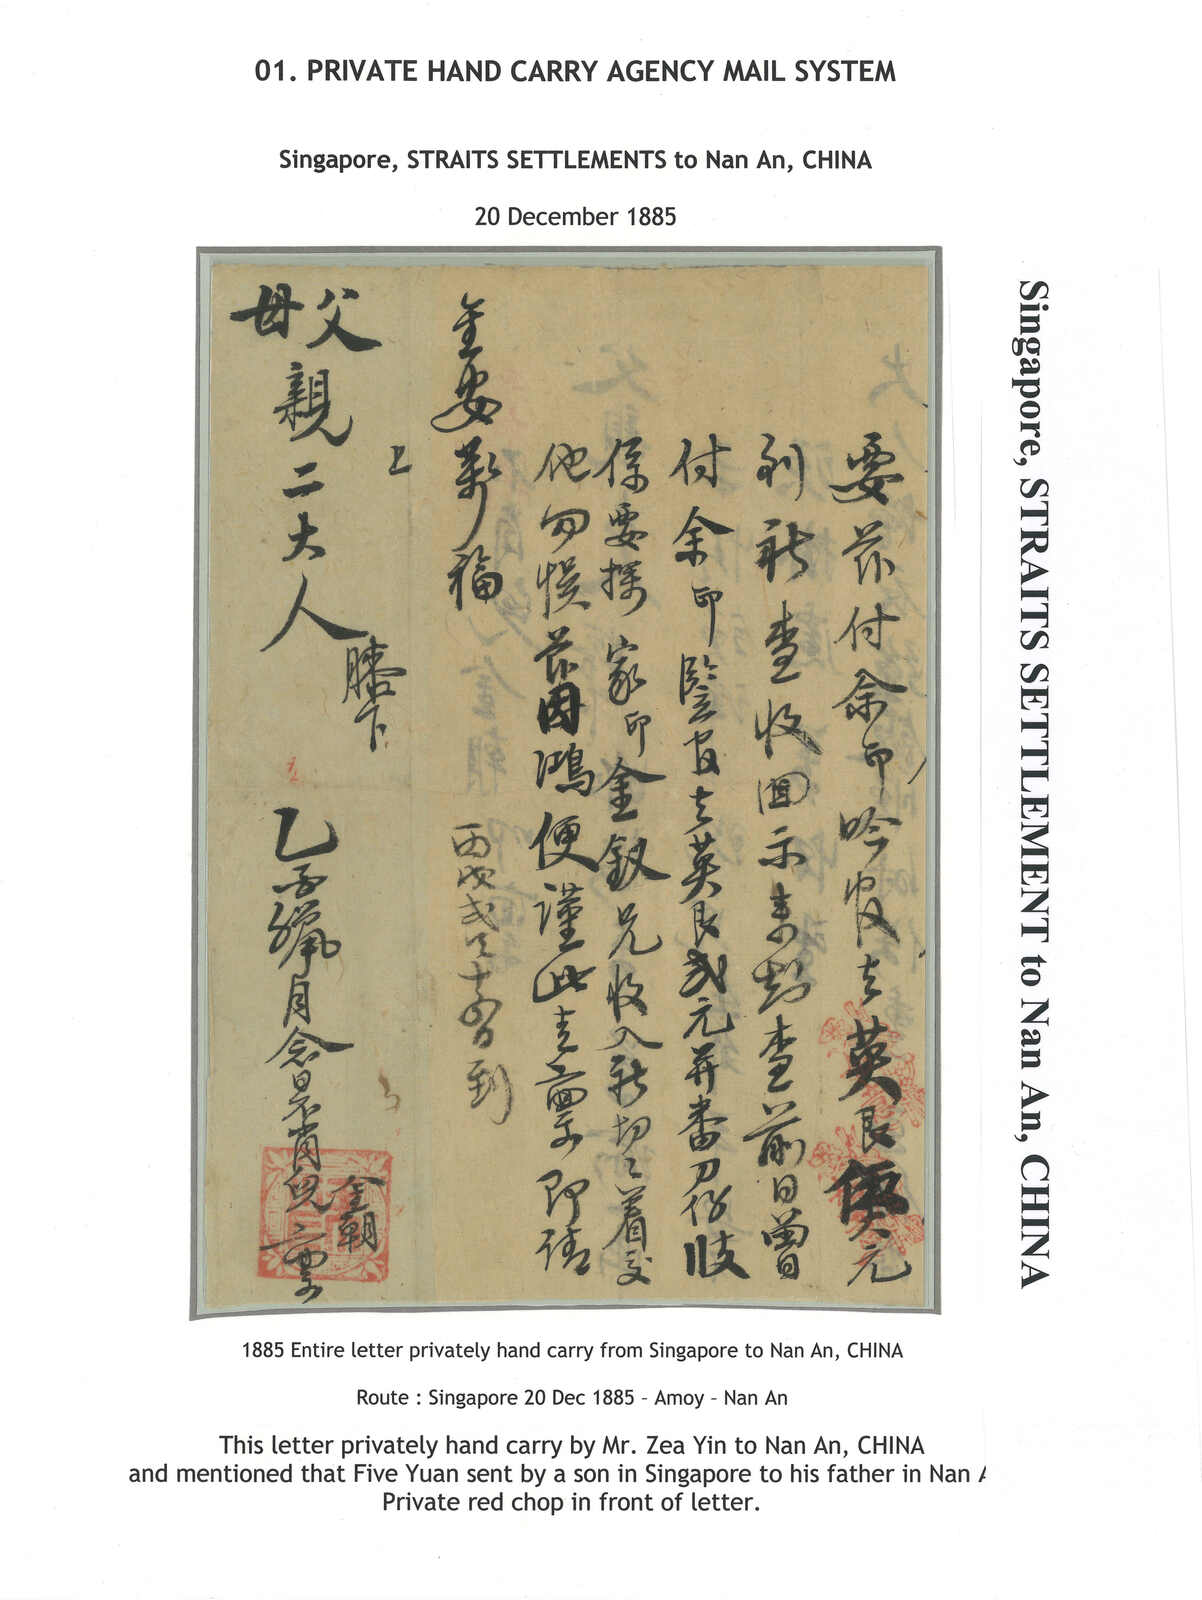 01. PRIVATE HAND CARRY AGENCY MAIL SYSTEM
Singapore, STRAITS SETTLEMENTS to Nan An, CHINA
20 December 1885
要茲付余印吟官去英艮伍大元
到祈查收回示來知查前日曾
付余印官去英艮弍元并番刀仔肢
係要探家印金釵兄收入祈切之着交
他勿悞茲因鴻便謹此走稟即請
金安萬福
丙戌弍天十日到
上
父母親二大人膝下
乙月念日兒金朝稟
Singapore, STRAITS SETTLEMENT to Nan An, CHINA
1885 Entire letter privately hand carry from Singapore to Nan An, CHINA
Route : Singapore 20 Dec 1885 – Amoy – Nan An
This letter privately hand carry by Mr. Zea Yin to Nan An, CHINA
and mentioned that Five Yuan sent by a son in Singapore to his father in Nan
Private red chop in front of letter.